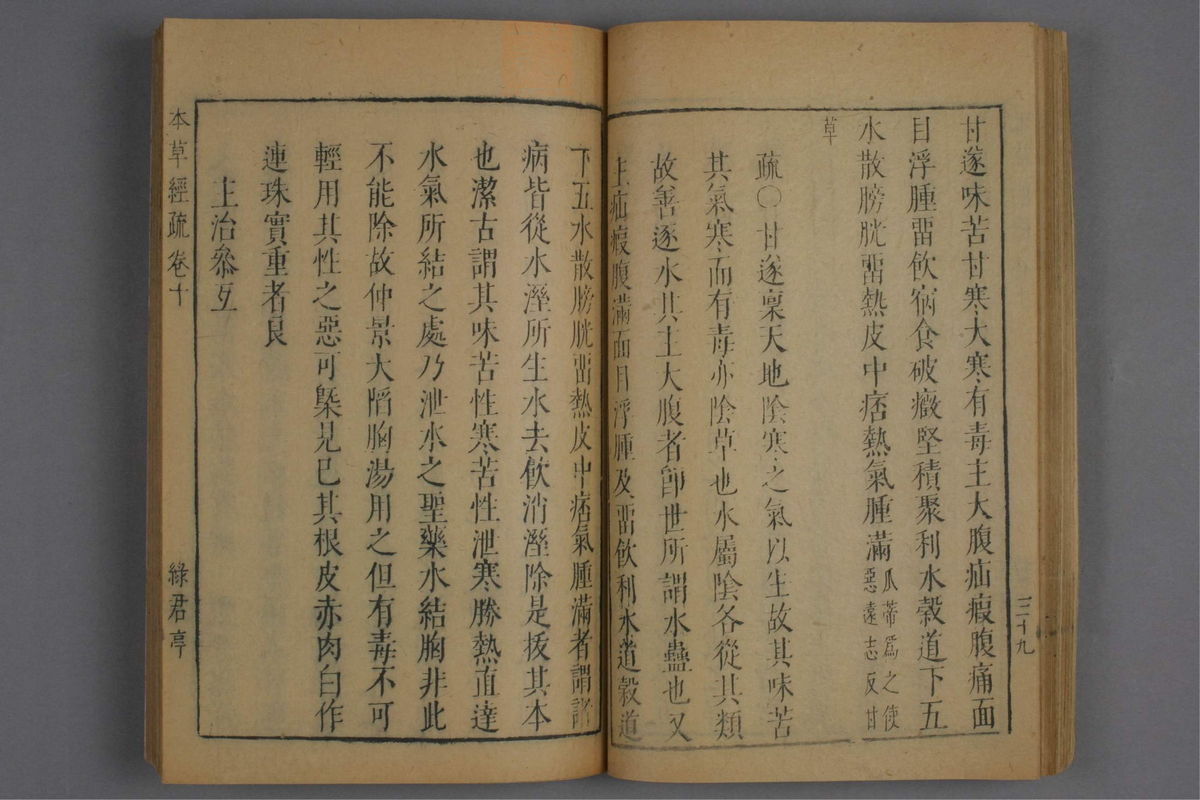 甘遂味苦甘寒大寒有毒主大腹疝瘕腹痛面
目浮腫畱飲宿食破癥堅積聚利水穀道下五
水散膀胱畱熱皮中痞熱氣腫滿瓜蒂爲之使惡遠志反甘
草
疏○甘遂稟天地陰寒之氣以生故其味苦
其氣寒而有毒亦陰草也水屬陰各從其類
故善逐水其主大腹者卽世所謂水蠱也又
主疝瘕腹滿面目浮腫及畱飲利水道穀道
下五水散膀胱畱熱皮中痞氣腫滿者謂諸
病皆從水溼所生水去飲消溼除是拔其本
也潔古謂其味苦性寒苦性泄寒勝熱直達
水氣所結之處乃泄水之聖藥水結胸非此
不能除故仲景大陷胸湯用之但有毒不可
輕用其性之惡可槩見已其根皮赤肉白作
連珠實重者良
主治叅互
三十九
本草經疏 卷十
綠君亭